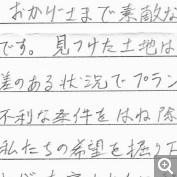 おかげさまで素敵な
です。見つけた土地は
差のある状況でプラン
不利な条件をはね除
私たちの希望を掘り下